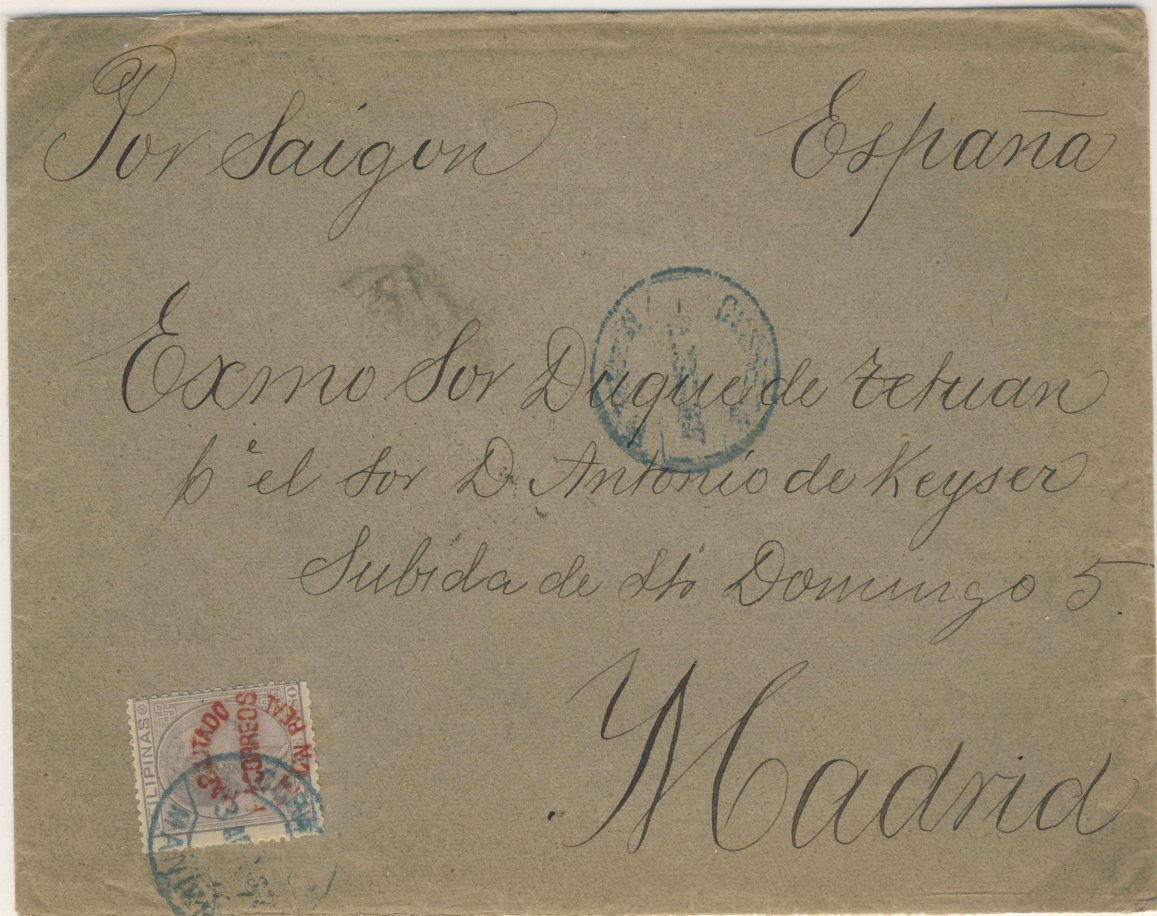 Por Saigon España
Exmo Sor Duque de Tetuan
pª el Sor D. Antonio de Keyser
Subida de Sto Domingo 5.
Madrid
FILIPINAS
HABILITADO
CORREOS
REAL